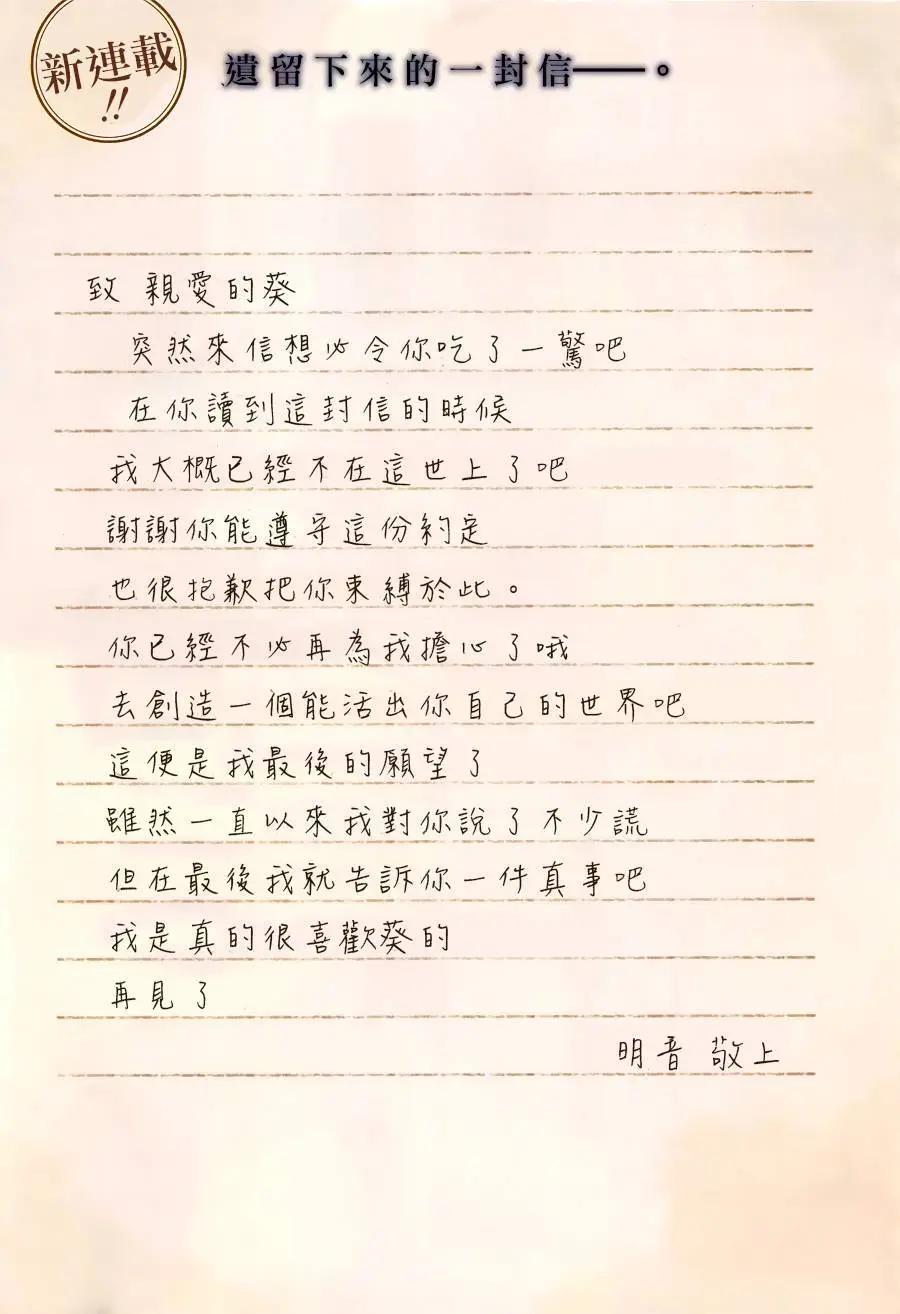 新連載
!!
遺留下來的一封信——。
致 親愛的葵
突然來信想必令你吃了一驚吧
在你讀到這封信的時候
我大概已經不在這世上了吧
謝謝你能遵守這份約定
也很抱歉把你束縛於此。
你已經不必再為我擔心了哦
去創造一個能活出你自己的世界吧
這便是我最後的願望了
雖然一直以來我對你說了不少謊
但在最後我就告訴你一件真事吧
我是真的很喜歡葵的
再見了
明音 敬上